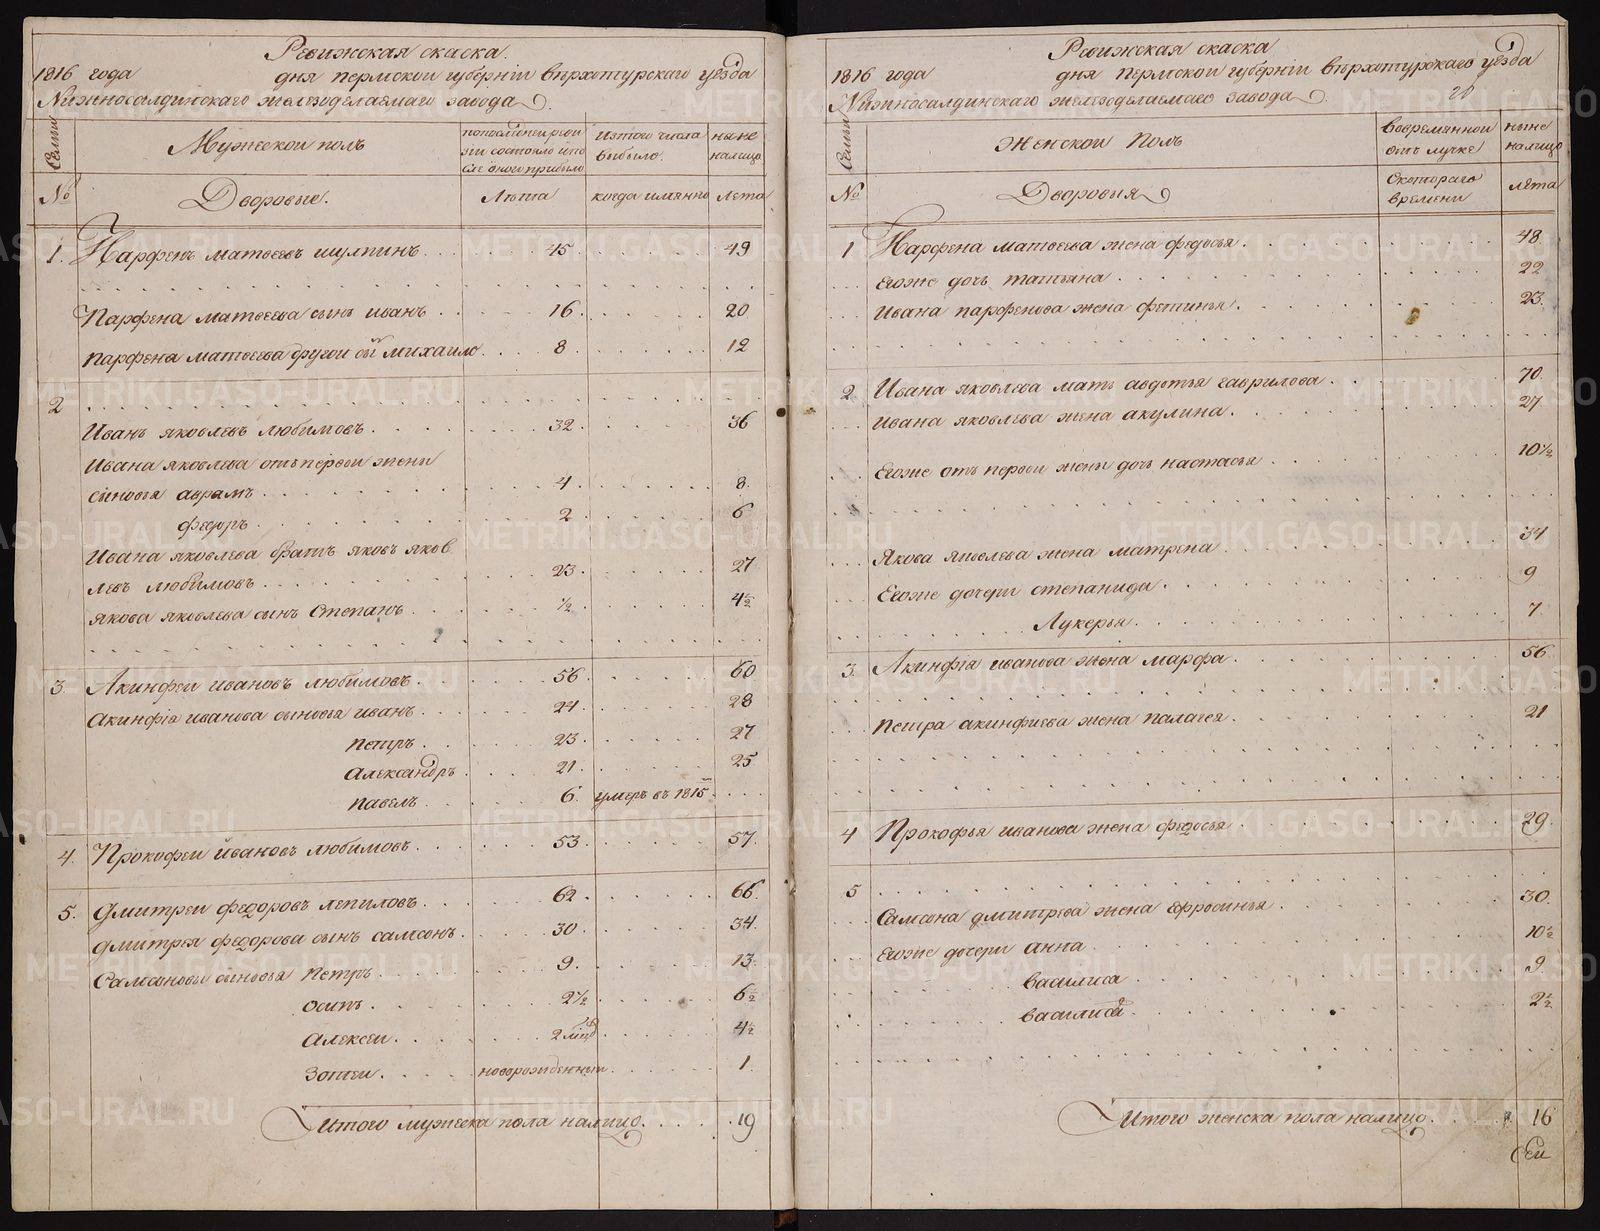 Ревижская скаска.
1816 года дня пермской губернiи верхотурскаго уезда
Нижносалдинскаго железоделаемаго завода
Семьи
Мужескои полъ
попоследнеи реви
зiи состояло ипо
сле оного прибыло
Изтого числа
выбыло.
ныне
налицо
№
Дворовые.
Лѣта
когда имянно
Лета
1. Парфенъ матвеевъ шулпинъ 45 49
Парфена матвеева сынъ иванъ 16 20
парфена матвеева другои сы михаило 8 12
2
Иванъ яковлевъ любимовъ 32 36
Ивана яковлева отъ первои жены
сыновья аврамъ 4 8
федоръ 2 6
Ивана яковлева братъ яковъ яков
левъ любимовъ 23 27
якова яковлева сынъ степанъ ½ 4½
3 Акинфеи ивановъ любимовъ 56 60
Акинфiя иванова сыновья иванъ 24 28
петръ 23 27
Александръ 21 25
павелъ 6 умеръ въ 1815
4. Прокофеи ивановъ любимовъ 53 57
5. Дмитреи федоровъ лепиловъ 62 66
дмитрея федорова сынъ самсонъ 30 34
Самсоновы сыновья петръ 9 13
осипъ 2½ 6½
Алексеи 2 4½
Зотеи новорожденныи 1
Итого мужеска пола налицо 19
Ревижская скаска
1816 года дня пермской губернiи верхотурскаго уезда
Нижносалдинскаго железоделаемаго завода
20
Семьи
Женскои Полъ
Вовременнои
отлучке
ныне
налицо
№
Дворовыя
Скотораго
времени
лета
1 Парфена матвеева жена федосья 48
Егоже дочь татьяна 22
Ивана парфенова жена фетинья 23
2 Ивана яковлева мать авдотья гаврилова 70
Ивана яковлева жена акулина 27
Егоже отъ первои жены дочь настасья 10½
Якова яковлева жена матрена 34
Егоже дочери степанида 9
Лукерья 7
3. Акинфiя иванова жена марфа 56
петра акинфиева жена палагея 21
4 Прокофья иванова жена федосья 29
5
Самсона дмитрева жена ефросинья 30
Егоже дочери анна 10½
василиса 9
василиса 2½
Итого женска пола налицо 16
Сеи
METRIKI.GASO-URAL.RU